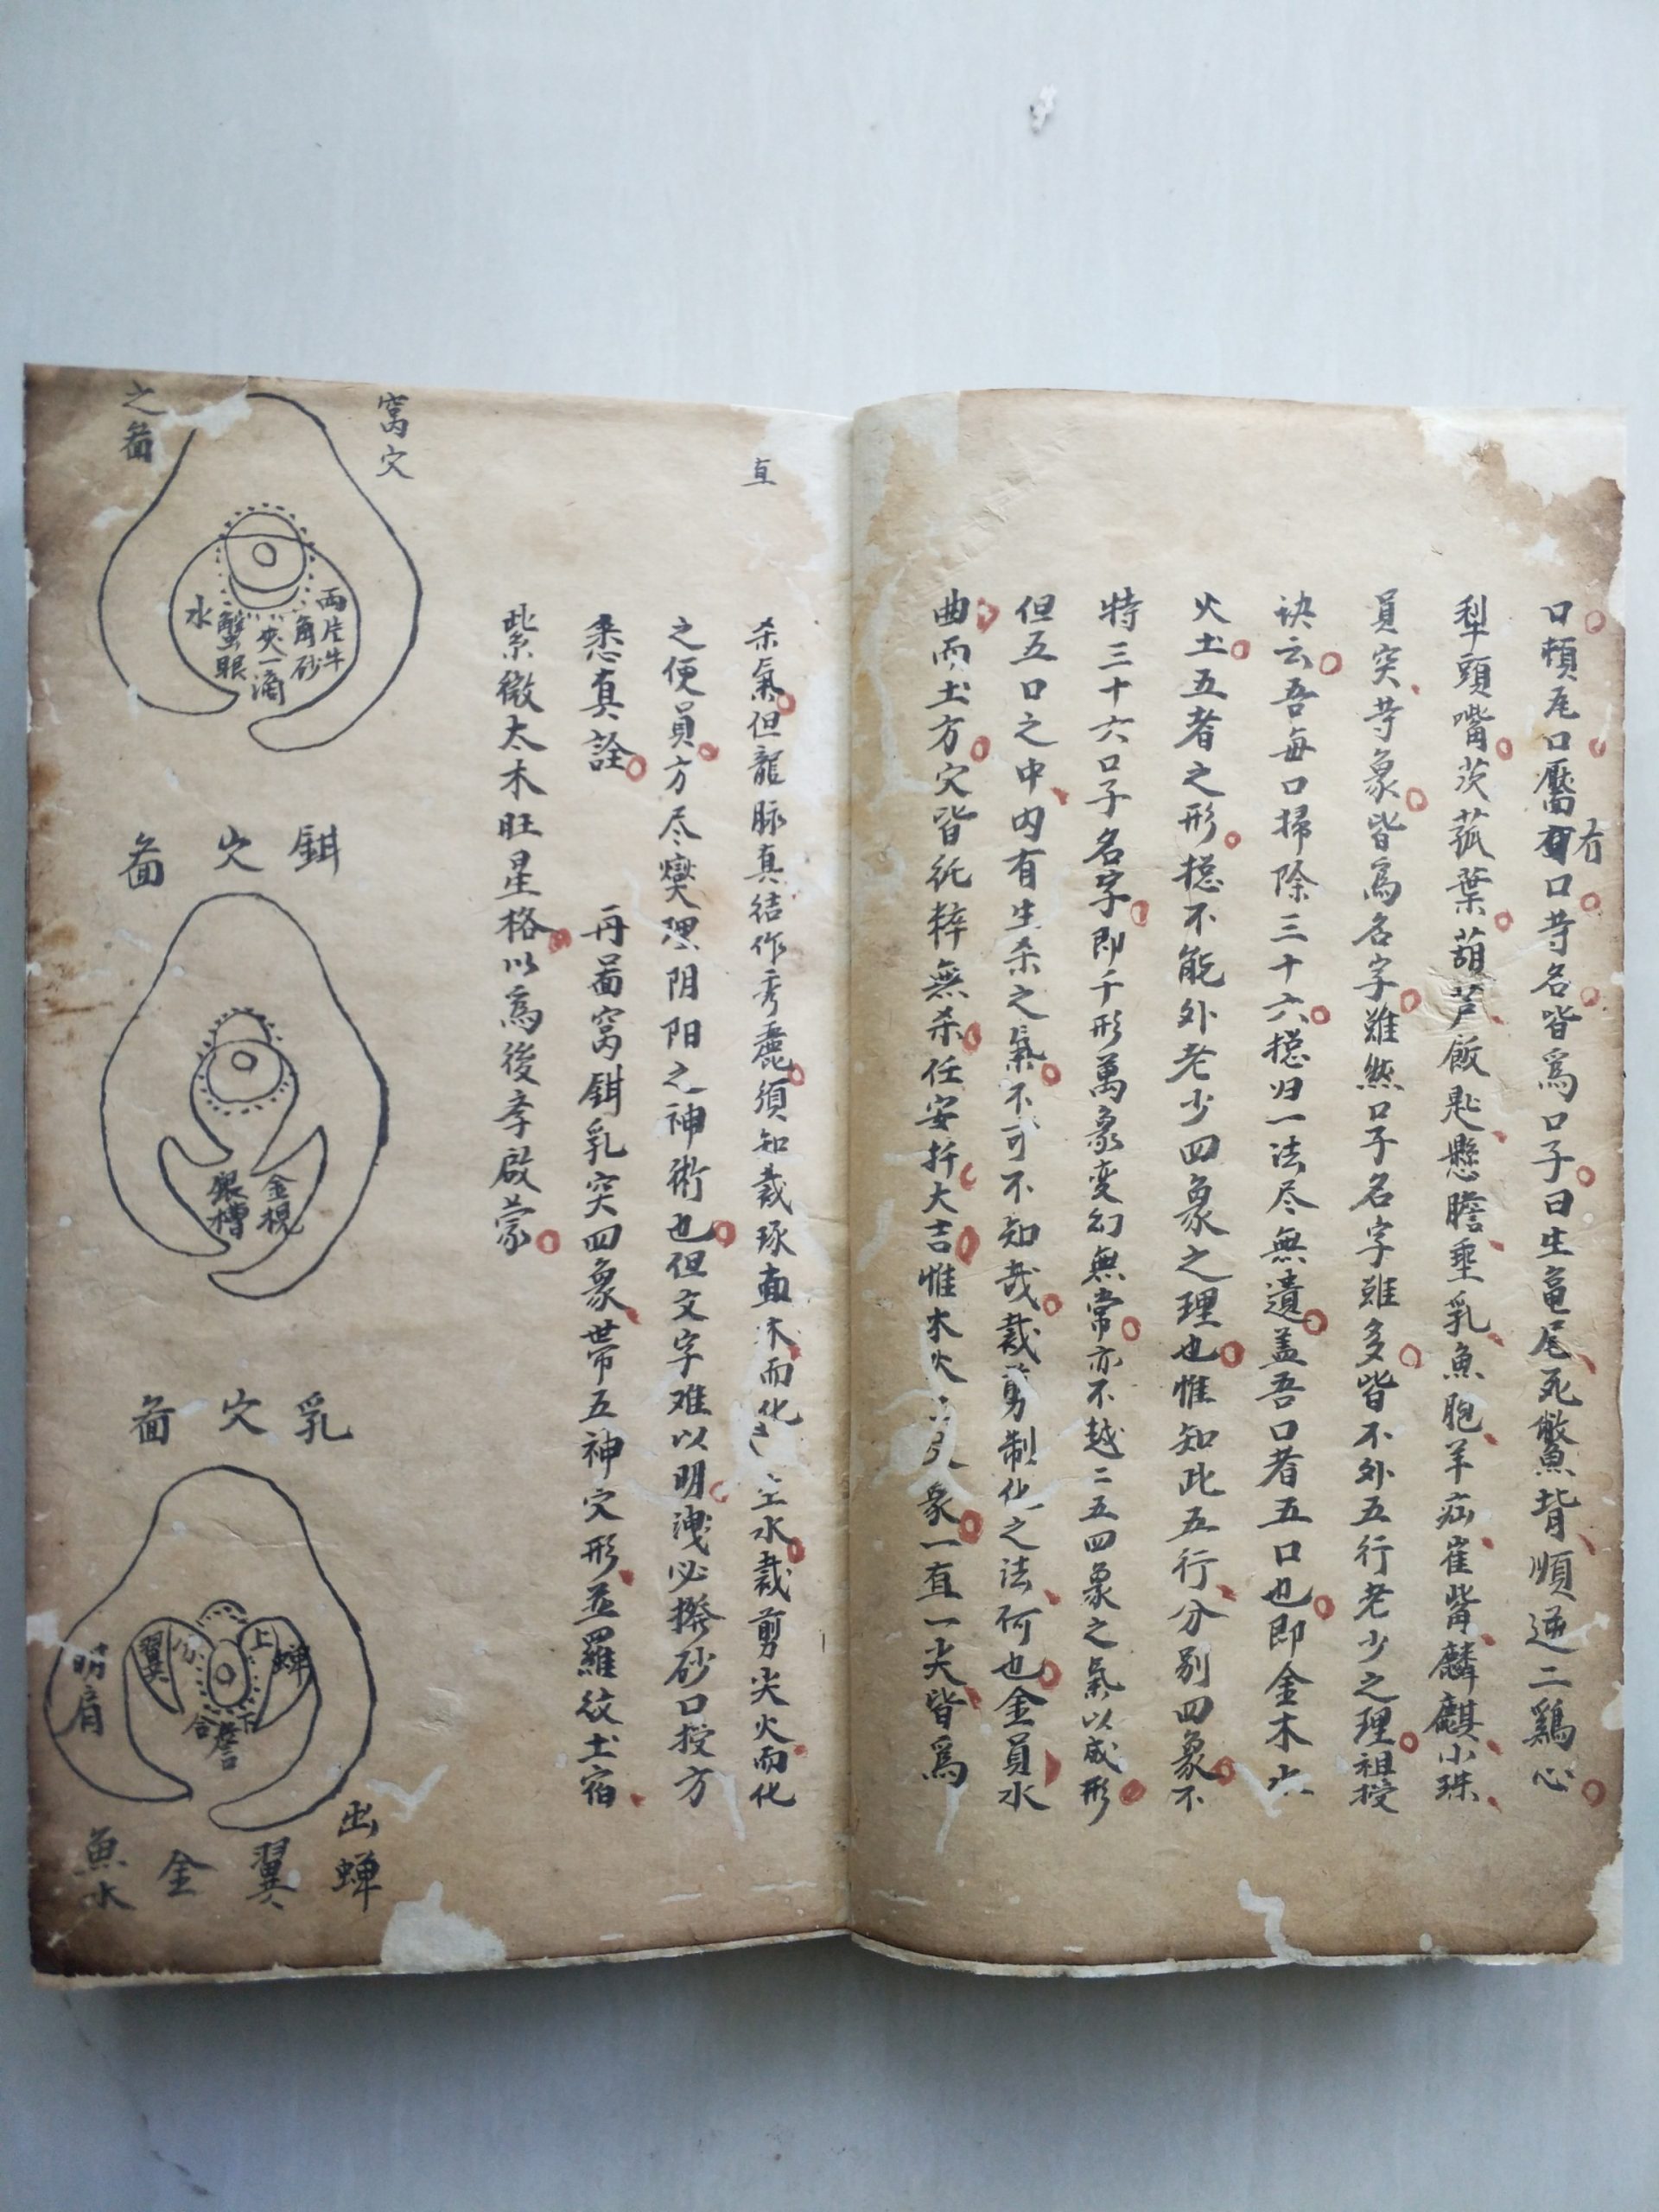 口頓尾口靨有口苛名皆爲口子曰生龜尾死鱉背順逆二鷄心
右
犁頭嘴茨菰葉葫芦飯匙懸膽垂乳魚胞羊疝崔觜麟麒小珠
員突苛象皆爲名字雖然口子名字雖多皆不外五行老少之理祖授
诀云吾每口掃除三十六捴归一法尽無遺盖吾口者五口也即金木水
火土五者之形捴不能外老少四象之理也惟知此五行分别四象不
特三十六口子名字即千形萬象变幻無常亦不越二五四象之氣以成形
但五口之中内有生杀之氣不可不知哉裁剪制化之法何也金員水
曲而土方穴皆纯粹無杀任安扦大吉惟木火象一直一尖皆爲
直
杀氣但龍脉真结作秀麗須知裁琢直木而化土水裁剪尖火而化
之便員方尽燮理阴阳之神術也但文字难以明洩必撥砂口授方
悉真詮　再啚窩鉗乳突四象帯五神穴形並羅紋土宿
紫微太木旺星格以爲後学啟蒙
窩穴
之啚
両片牛
角砂
夾一滴
蟹眼
水
鉗穴啚
金梘
銀槽
乳穴啚
上
蝉
分
翼
下
合
簷
明肩
出蝉
翼
金
魚水